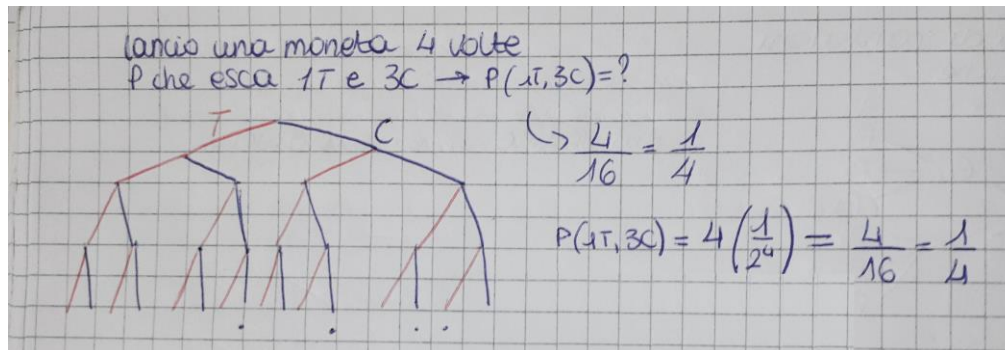 lancio una moneta 4 volte
P che esca 1T e 3C → P(1T, 3C) = ?
T C
↳ 4/16 = 1/4
P(1T, 3C) = 4 (1/2⁴) = 4/16 = 1/4